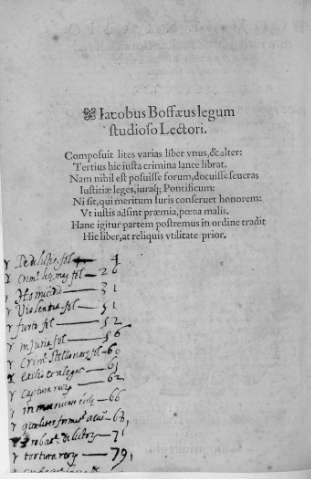 Iacobus Bossæus legum
studioso Lectori.
Composuit lites varias liber vnus, & alter:
Tertius hic iusta crimina lance librat.
Nam nihil est posuisse forum, docuisse seueras
Iustitiæ leges, iuraq; Pontificum:
Ni sit, qui meritum Iuris conseruet honorem:
Vt iustis adsint præmia, pœna malis.
Hanc igitur partem postremus in ordine tradit
Hic liber, at reliquis vtilitate prior.
fol — 4
fol — 26
Homicid — 31
Violentia fol — 51
furto fol — 52
injuria fol — 56
Crim. Stellionat fol 60
exilio — 61
captura — 62
— 66
— 68,
— 71
tortura — 79,